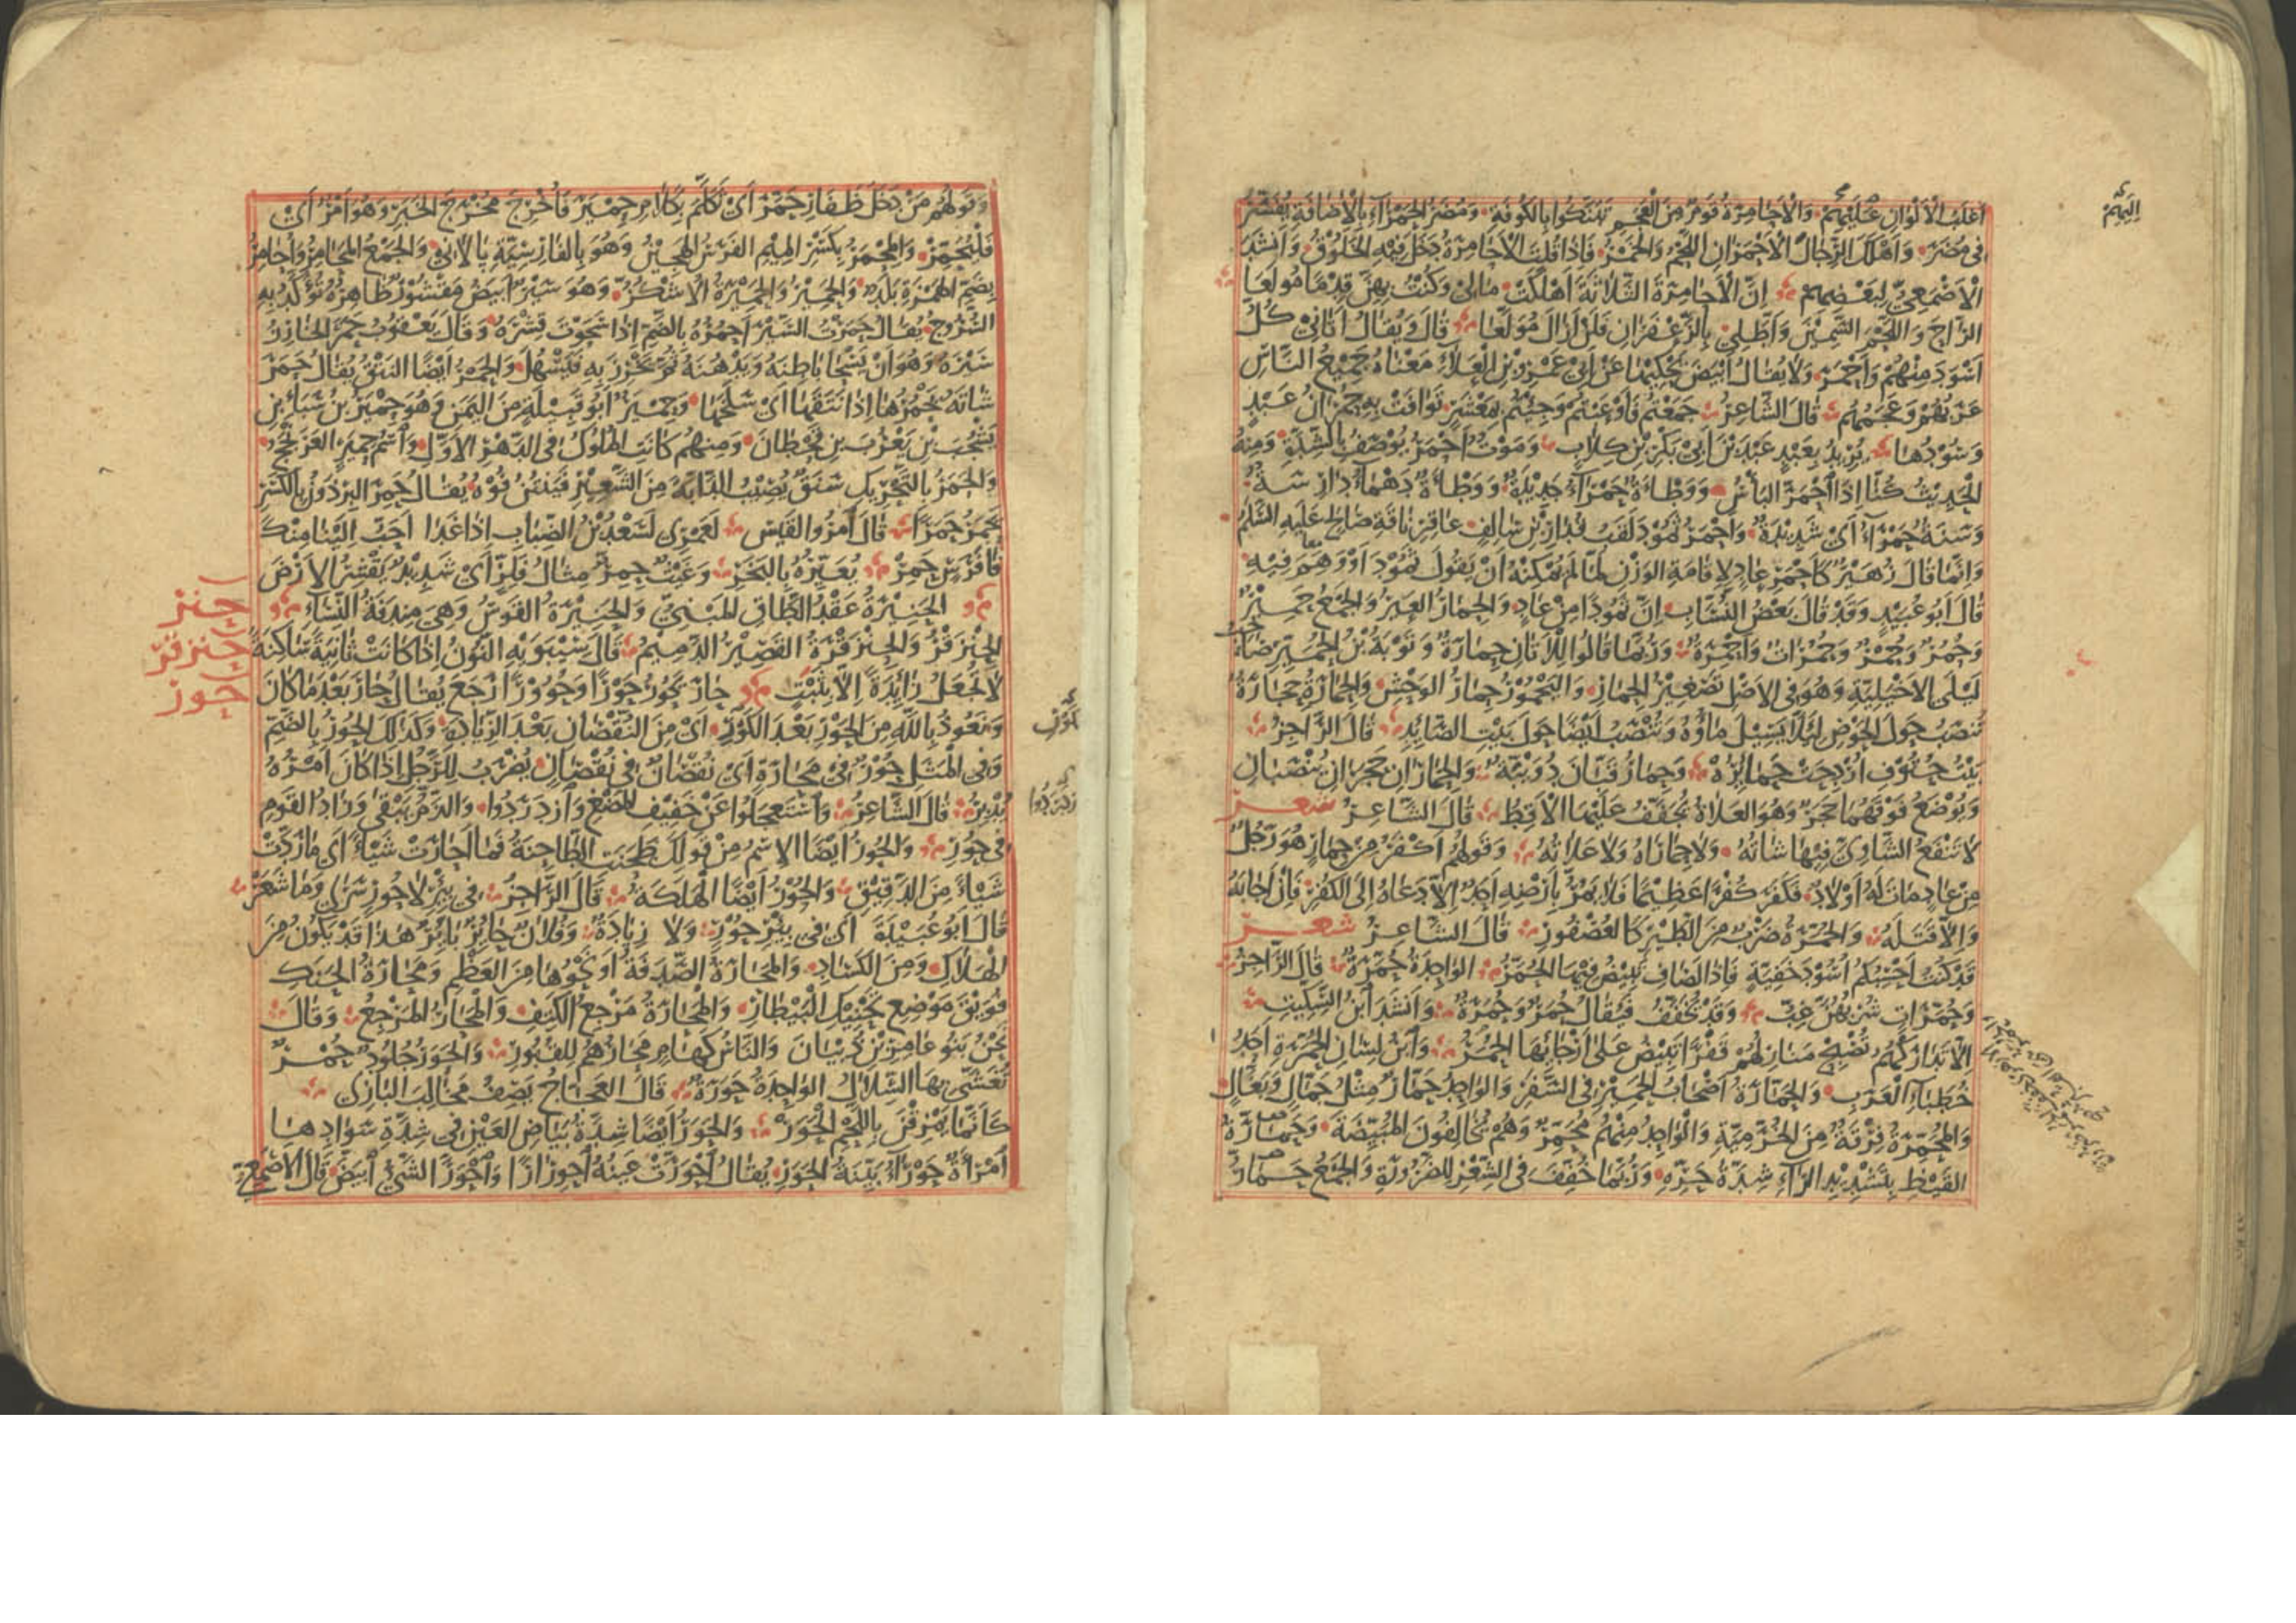 اغلب الالوان عليهم والاحامرة قوم من العجم تبنكوا بالكوفة ومضر الحمراء بالاضافة يفسر
في مضر واهلك الرجال الاحمران اللحم والخمر فاذا قلت الاحامرة دخل فيه الخلوق وانشد
الاصمعي لبعضهم ان الاحامرة الثلاثة اهلكت مالي وكنت بهن قدما مولعا
الراح واللحم السمين واطلي بالزعفران فلن ازال مولعا قال ويقال اتاني كل
اسود منهم واحمر ولا يقال ابيض يحكيها عن ابي عمرو بن العلاء معناه جميع الناس
عربهم وعجمهم قال الشاعر جمعتم فاوعيتم وجئتم بمعشر توافت به حمران عبد
وسودها يريد بعبد عبد بن ابي بكر بن كلاب وموت احمر يوصف بالشدة ومنه
الحديث كنا اذا احمر البأس ووطاة حمراء جديدة ووطأة دهماء دارسة
وسنة حمراء اي شديدة واحمر ثمود لقب قدار بن سالف عاقر ناقة صالح عليه السلم
وانما قال زهير كاحمر عاد لاقامة الوزن لما لم يمكنه ان يقول ثمود او وهم فيه
قال ابو عبيد وقد قال بعض النساب ان ثمودا من عاد والحمار العير والجمع حمير
وحمر وحمر وحمرات واحمرة وربما قالوا للاتان حمارة وتوبة بن الحمير صاحب
ليلى الاخيلية وهو في الاصل تصغير الحمار واليحمور حمار الوحش والحمارة حجارة
تنصب حول الحوض لئلا يسيل ماؤه وتنصب ايضا حول بيت الصائد قال الراجز
بيت حتوف اردحت حمائره وحمار قبان دويبة والحماران حجران ينصبان
ويوضع فوقهما حجر وهو العلاة يجفف عليهما الاقط قال الشاعر شعر
لا تنفع الشاوي فيها شاته ولا حماراه ولا علاته وقولهم اكفر من حمار هو رجل
من عاد مات له اولاد فكفر كفرا عظيما فلا يمر بارضه احد الا دعاه الى الكفر فان اجابه
والا قتله والحمرة ضرب من الطير كالعصفور قال الشاعر شعر
قد كنت احسبكم اسود خفية فاذا لصاف تبيض فيها الحمر الواحدة حمرة قال الراجز
وحمرات شربهن غب وقد تخفف فيقال حمر وحمرة وانشد ابن السكيت
الا تداركهم تصبح منازلهم قفرا تبيض على ارجائها الحمر وابن لسان الحمرة احد
خطباء العرب والحمارة اصحاب الحمير في السفر والواحد حمار مثل جمال وبغال
والمحمرة فرقة من الخرمية والواحد منهم محمر وهم يخالفون المبيضة وحمارة
القيظ بتشديد الراء شدة حره وربما خفف في الشعر للضرورة والجمع حمار
اليهم
وقولهم من دخل ظفار حمر اي تكلم بكلام حمير فاخرج مخرج الخبر وهو امر اي
فليحمر والمحمر بكسر الميم الفرس الهجين وهو بالفارسية بالاني والجمع المحامر واحامر
بضم الهمزة بلد والحمير والحميرة الاشكز وهو سير ابيض مقشور ظاهره تؤكد به
السروج يقال حمرت السير احمره بالضم اذا سحوت قشره وقال يعقوب حمر الخارز
سيره وهو ان يسحا باطنه ويدهنه ثم يخرز به فيسهل والحمر ايضا النتق يقال حمر
شاته يحمرها اذا نتقها اي سلخها وحمير ابو قبيلة من اليمن وهو حمير بن سبا بن
يشجب بن يعرب بن قحطان ومنهم كانت الملوك في الدهر الاول واسم حمير العرنجج
والحمر بالتحريك سنق يصيب الدابة من الشعير فينتن فوه يقال حمر البرذون بالكسر
يحمر حمرا قال امرؤ القيس لعمري لسعد بن الضباب اذا غدا احب الينا منك
فا فرس حمر يعيره بالبخر وغيث حمر مثال فلز اي شديد يقشر الارض
الحنيرة عقد الطاق المبني والحنيرة القوس وهي مندفة النساء
الحنزقر والحنزقرة القصير الدميم قال سيبويه النون اذا كانت ثانية ساكنة
لا تجعل زايدة الا بثبت حار يحور حورا وحوورا رجع يقال حار بعد ما كان
ونعوذ بالله من الحور بعد الكور اي من النقصان بعد الزيادة وكذلك الحور بالضم
وفي المثل حور في محارة اي نقصان في نقصان يضرب للرجل اذا كان امره
يدبر قال الشاعر واستعجلوا عن خفيف المضغ وازدردوا والذم يبقى وزاد القوم
في حور والحور ايضا الاسم من قولك طحنت الطاحنة فما احارت شيئا اي ما ردت
شيئا من الدقيق والحور ايضا الهلكة قال الراجز في بئر لا حور سرى وما شعر
قال ابو عبيدة اي في بئر حور ولا زيادة وفلان حائر بائر هذا قد يكون من
الهلاك ومن الكساد والمحارة الصدفة او نحوها من العظم ومحارة الحنك
فويق موضع تحنيك البيطار والمحارة مرجع الكتف والمحار المرجع وقال
نحن بنو عامر بن ذبيان والناس كهام محارهم للقبور والحور جلود حمر
تغشى بها السلال الواحدة حورة قال العجاج يصف مخالب البازي
كانما يمزقن باللحم الحور والحور ايضا شدة بياض العين في شدة سوادها
امراة حوراء بينة الحور يقال احورت عينه احورارا واحور الشيء ابيض قال الاصمعي
حنر
حنزقر
حور